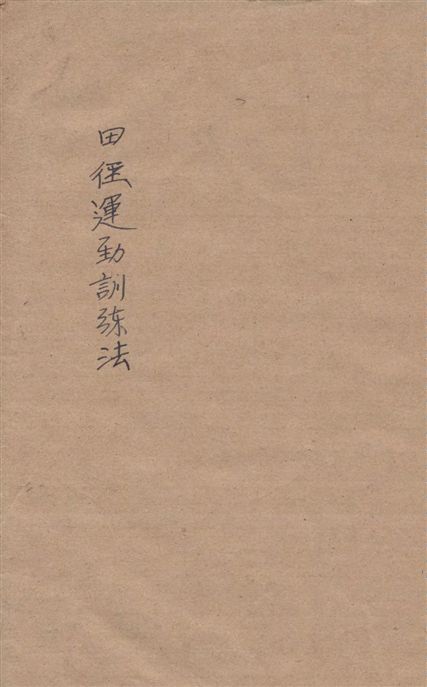 田徑運動訓练法